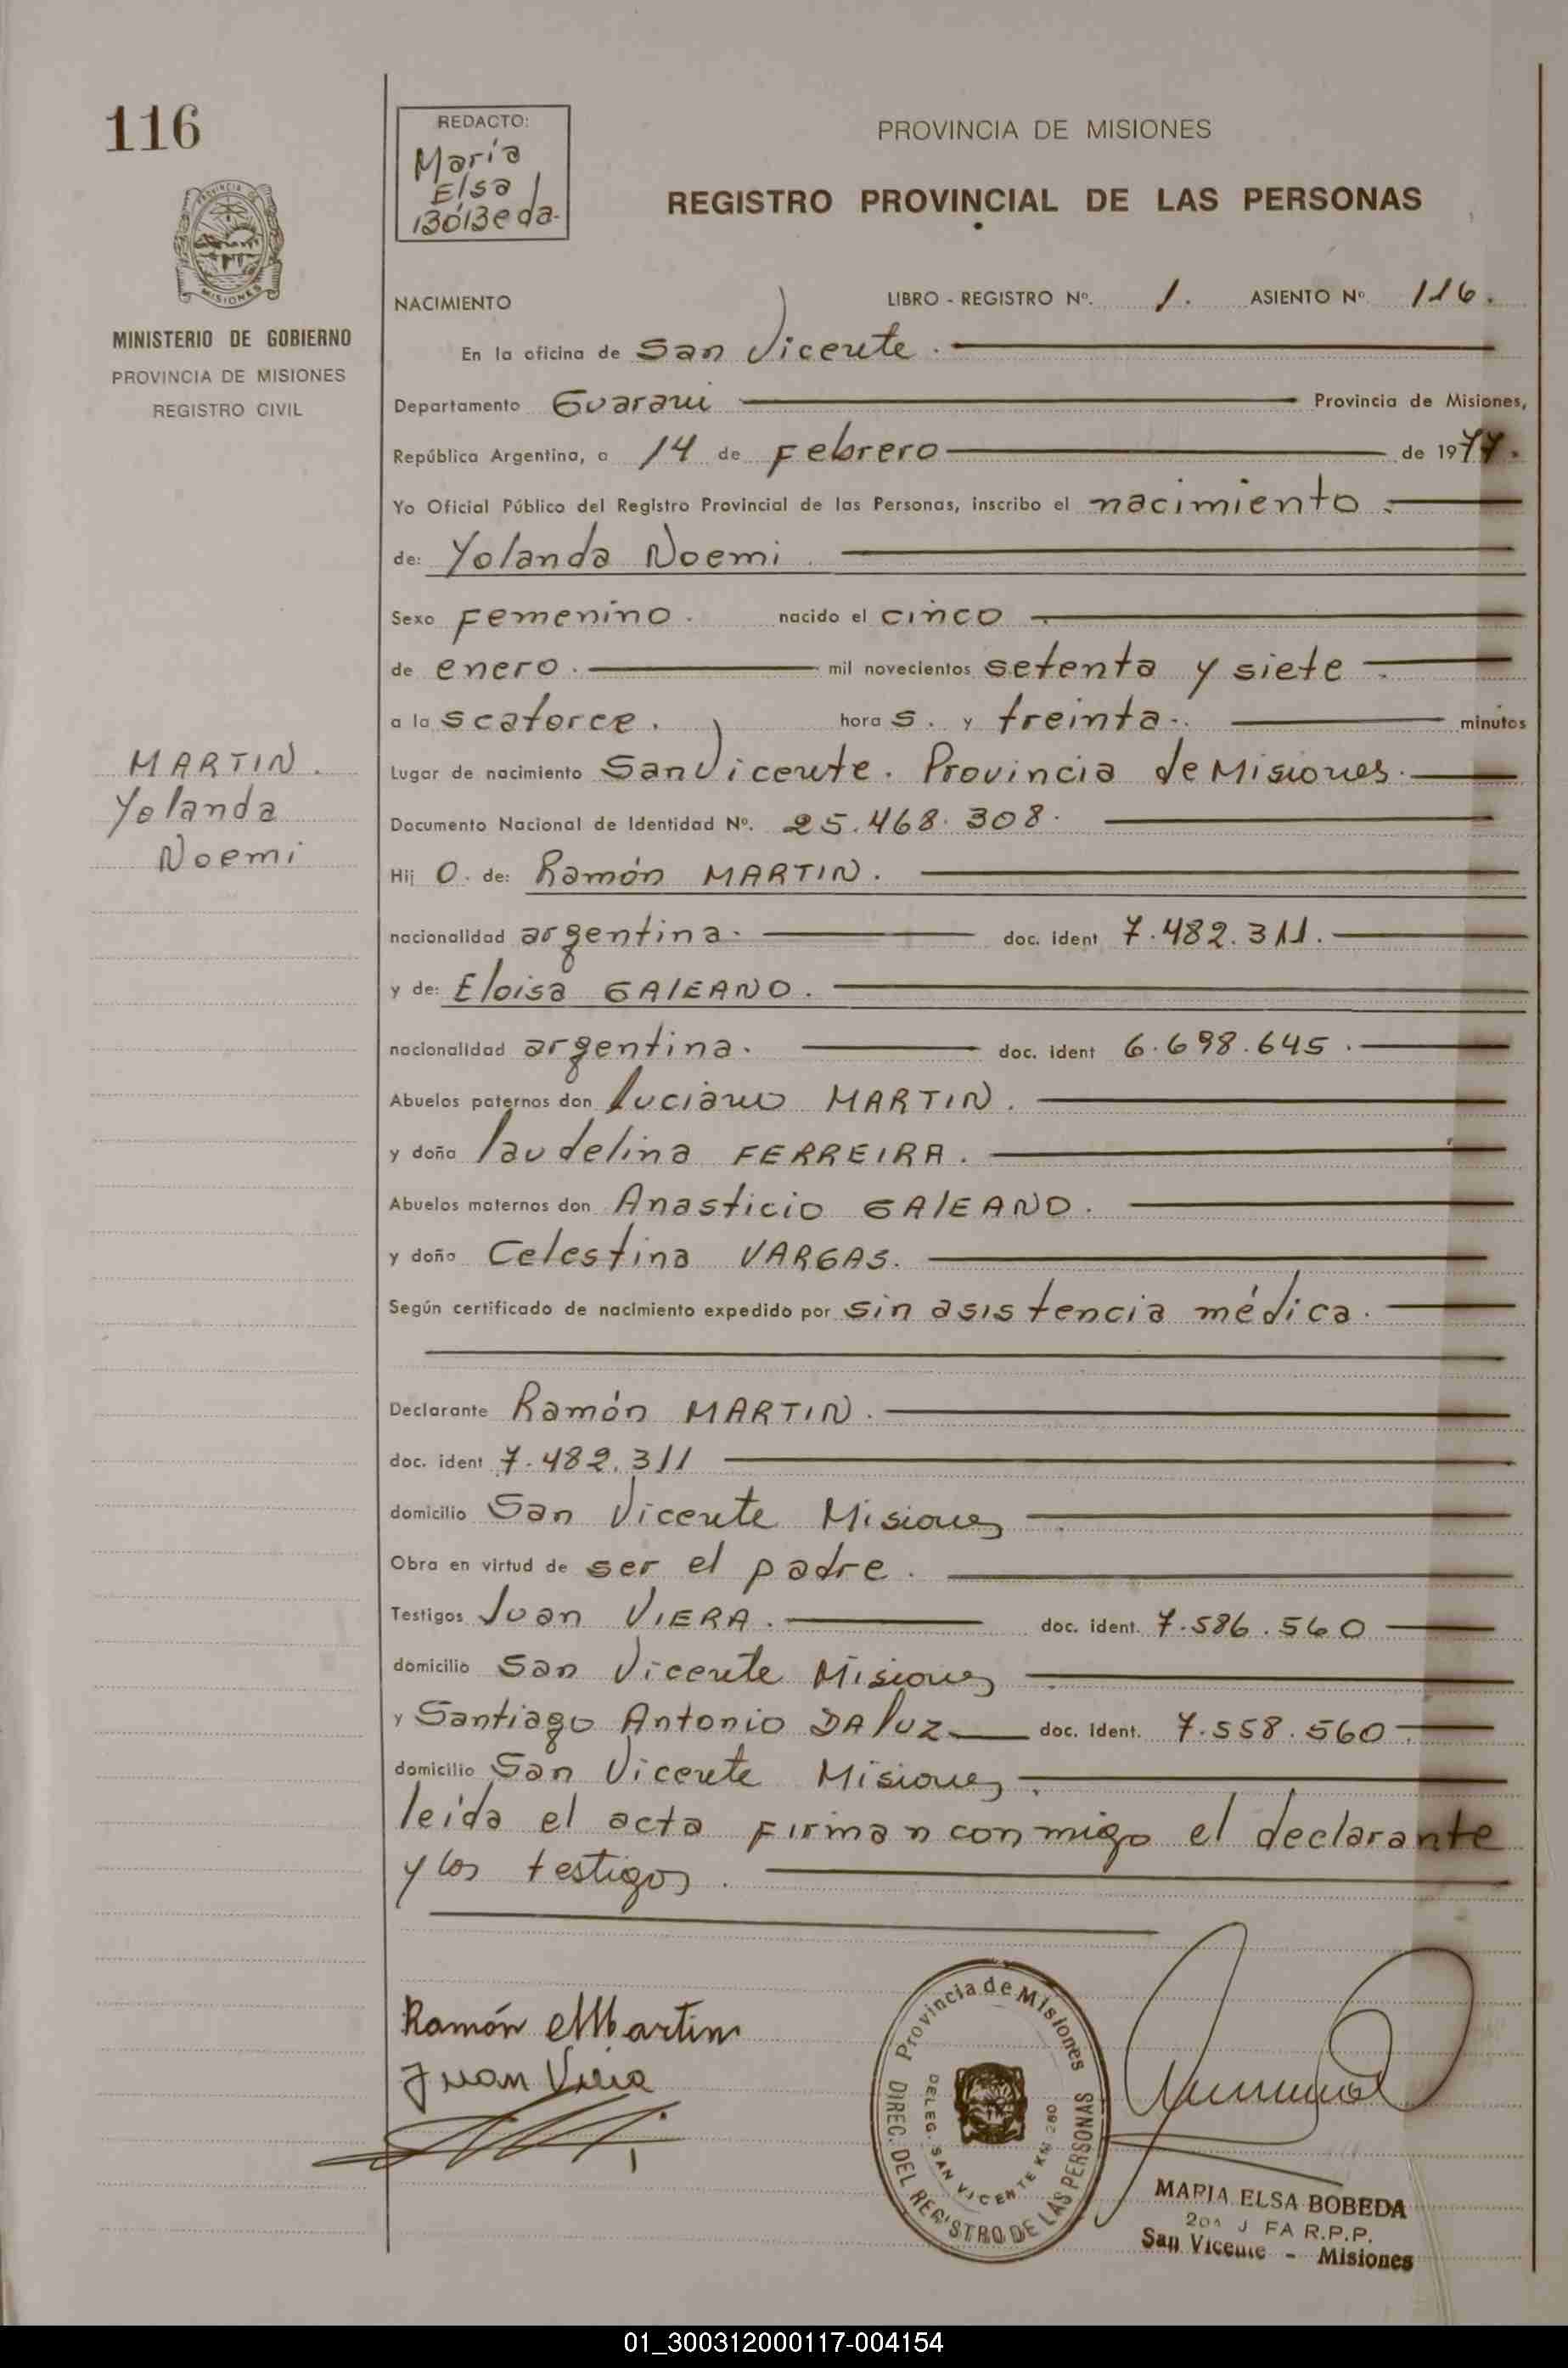 116
REDACTO:
María
Elsa
BóBeda.
PROVINCIA DE MISIONES
REGISTRO PROVINCIAL DE LAS PERSONAS
PROVINCIA DE
MISIONES
MINISTERIO DE GOBIERNO
PROVINCIA DE MISIONES
REGISTRO CIVIL
NACIMIENTO LIBRO - REGISTRO Nº. 1. ASIENTO Nº 116.
En la oficina de San Vicente.
Departamento Guarani Provincia de Misiones,
República Argentina, a 14 de Febrero de 1977.
Yo Oficial Público del Registro Provincial de las Personas, inscribo el nacimiento.
de: Yolanda Noemi.
Sexo Femenino. nacido el cinco.
de enero. mil novecientos setenta y siete.
a la s catorce. hora s. y treinta. minutos
MARTIN.
Yolanda
Noemi
Lugar de nacimiento San Vicente. Provincia de Misiones.
Documento Nacional de Identidad Nº. 25.468.308.
Hij o. de: Ramón MARTIN.
nacionalidad argentina. doc. ident 7.482.311.
y de: Eloisa GAlEANO.
nacionalidad argentina. doc. ident 6.698.645.
Abuelos paternos don luciano MARTIN.
y doña laudelina FERREIRA.
Abuelos maternos don Anasticio GAlEANO.
y doña Celestina VARGAS.
Según certificado de nacimiento expedido por sin asistencia médica.
Declarante Ramón MARTIN.
doc. ident 7.482.311
domicilio San Vicente Misiones.
Obra en virtud de ser el padre.
Testigos Juan VIERA. doc. ident. 7.586.560
domicilio San Vicente Misiones.
y Santiago Antonio DAluz doc. ident. 7.558.560.
domicilio San Vicente Misiones.
leída el acta firman conmigo el declarante
y los testigos.
Ramón Martin
Juan Viera
Provincia de Misiones
DIREC. DEL REGISTRO DE LAS PERSONAS
DELEG. SAN VICENTE KM 280
MARIA ELSA BOBEDA
FA R.P.P.
San Vicente - Misiones
01_300312000117-004154